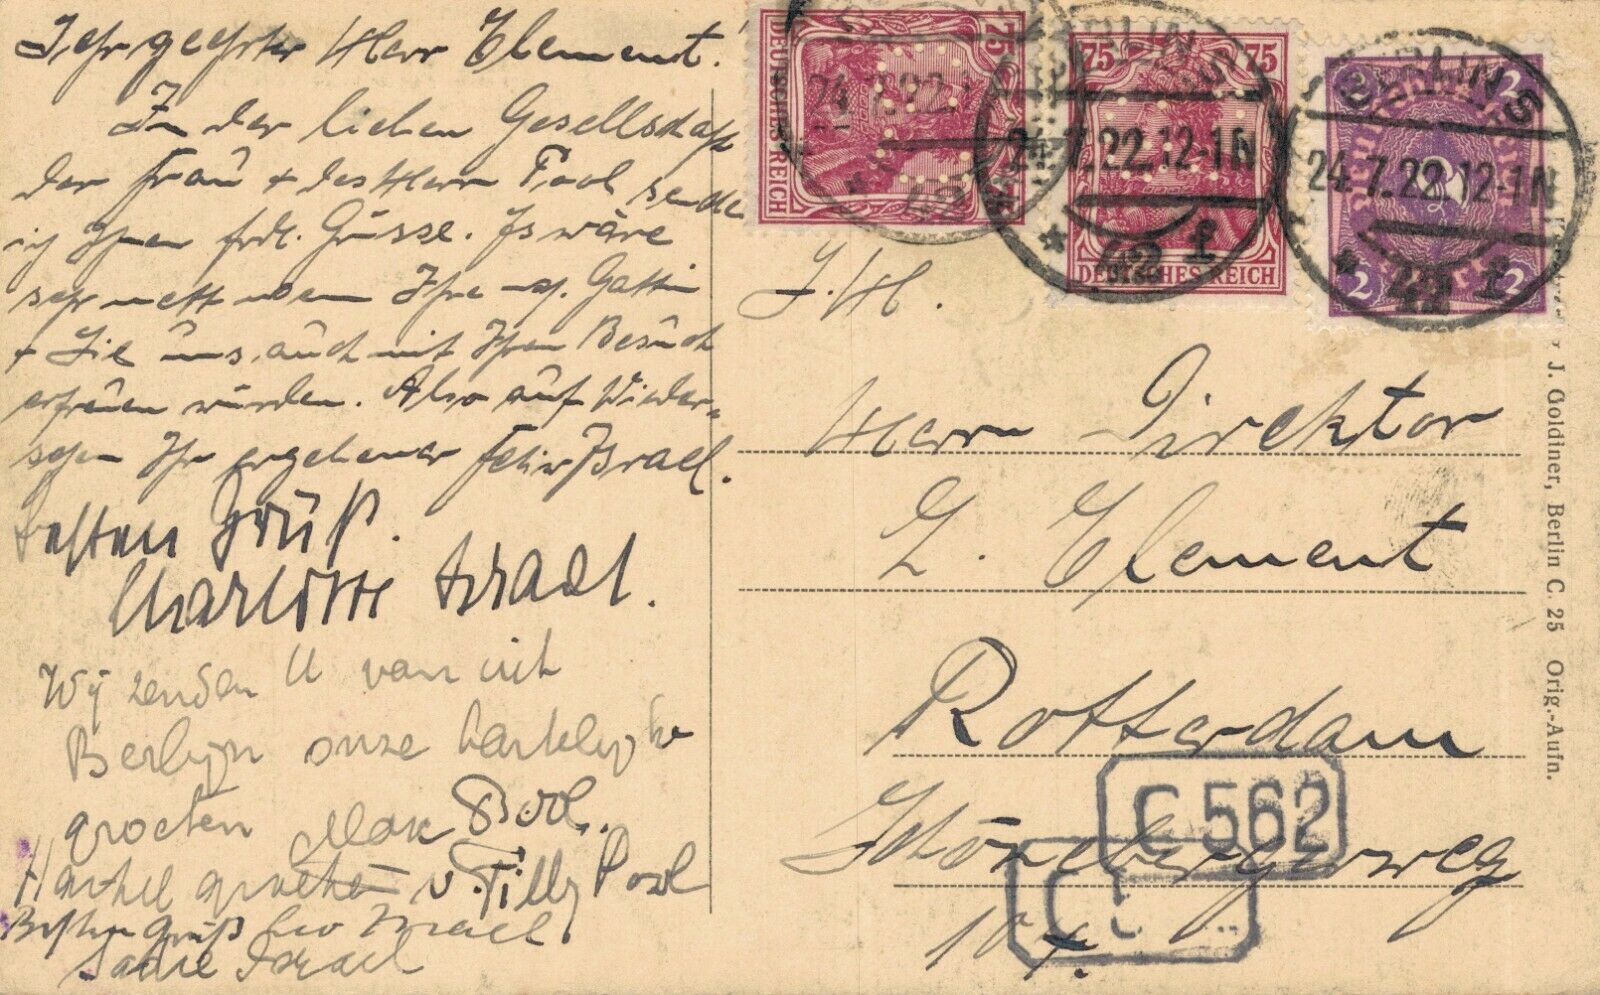 Sehr geehrter Herr Element!
In der lieben Gesellschaft
der Frau + des Herrn Pool sende
ich Ihnen frdl. Grüsse. Es wäre
sehr nett wenn Ihre Gattin
+ Sie uns auch mit Ihrem Besuch
erfreuen würden. Also auf Wieder-
sehen Ihr ergebener Felix Israel.
besten Gruß.
Charlotte Israel.
Wij zenden U van uit
Berlijn onze hartelijke
groeten Max Pool.
Hartel groeten v. Tilly Pool
Besten Gruß Leo Israel
Israel
DEUTSCHES REICH
75
24.7.22.
75 75
DEUTSCHES REICH
BERLIN S
24.7.22.12-1N
* 42 f
2 2
2 2
BERLIN S
24.7.22.12-1N
* 42 f
Herrn Direktor
L. Element
Rotterdam
Schöneberger weg
C 562
J. Goldiner, Berlin C. 25 Orig.-Aufn.